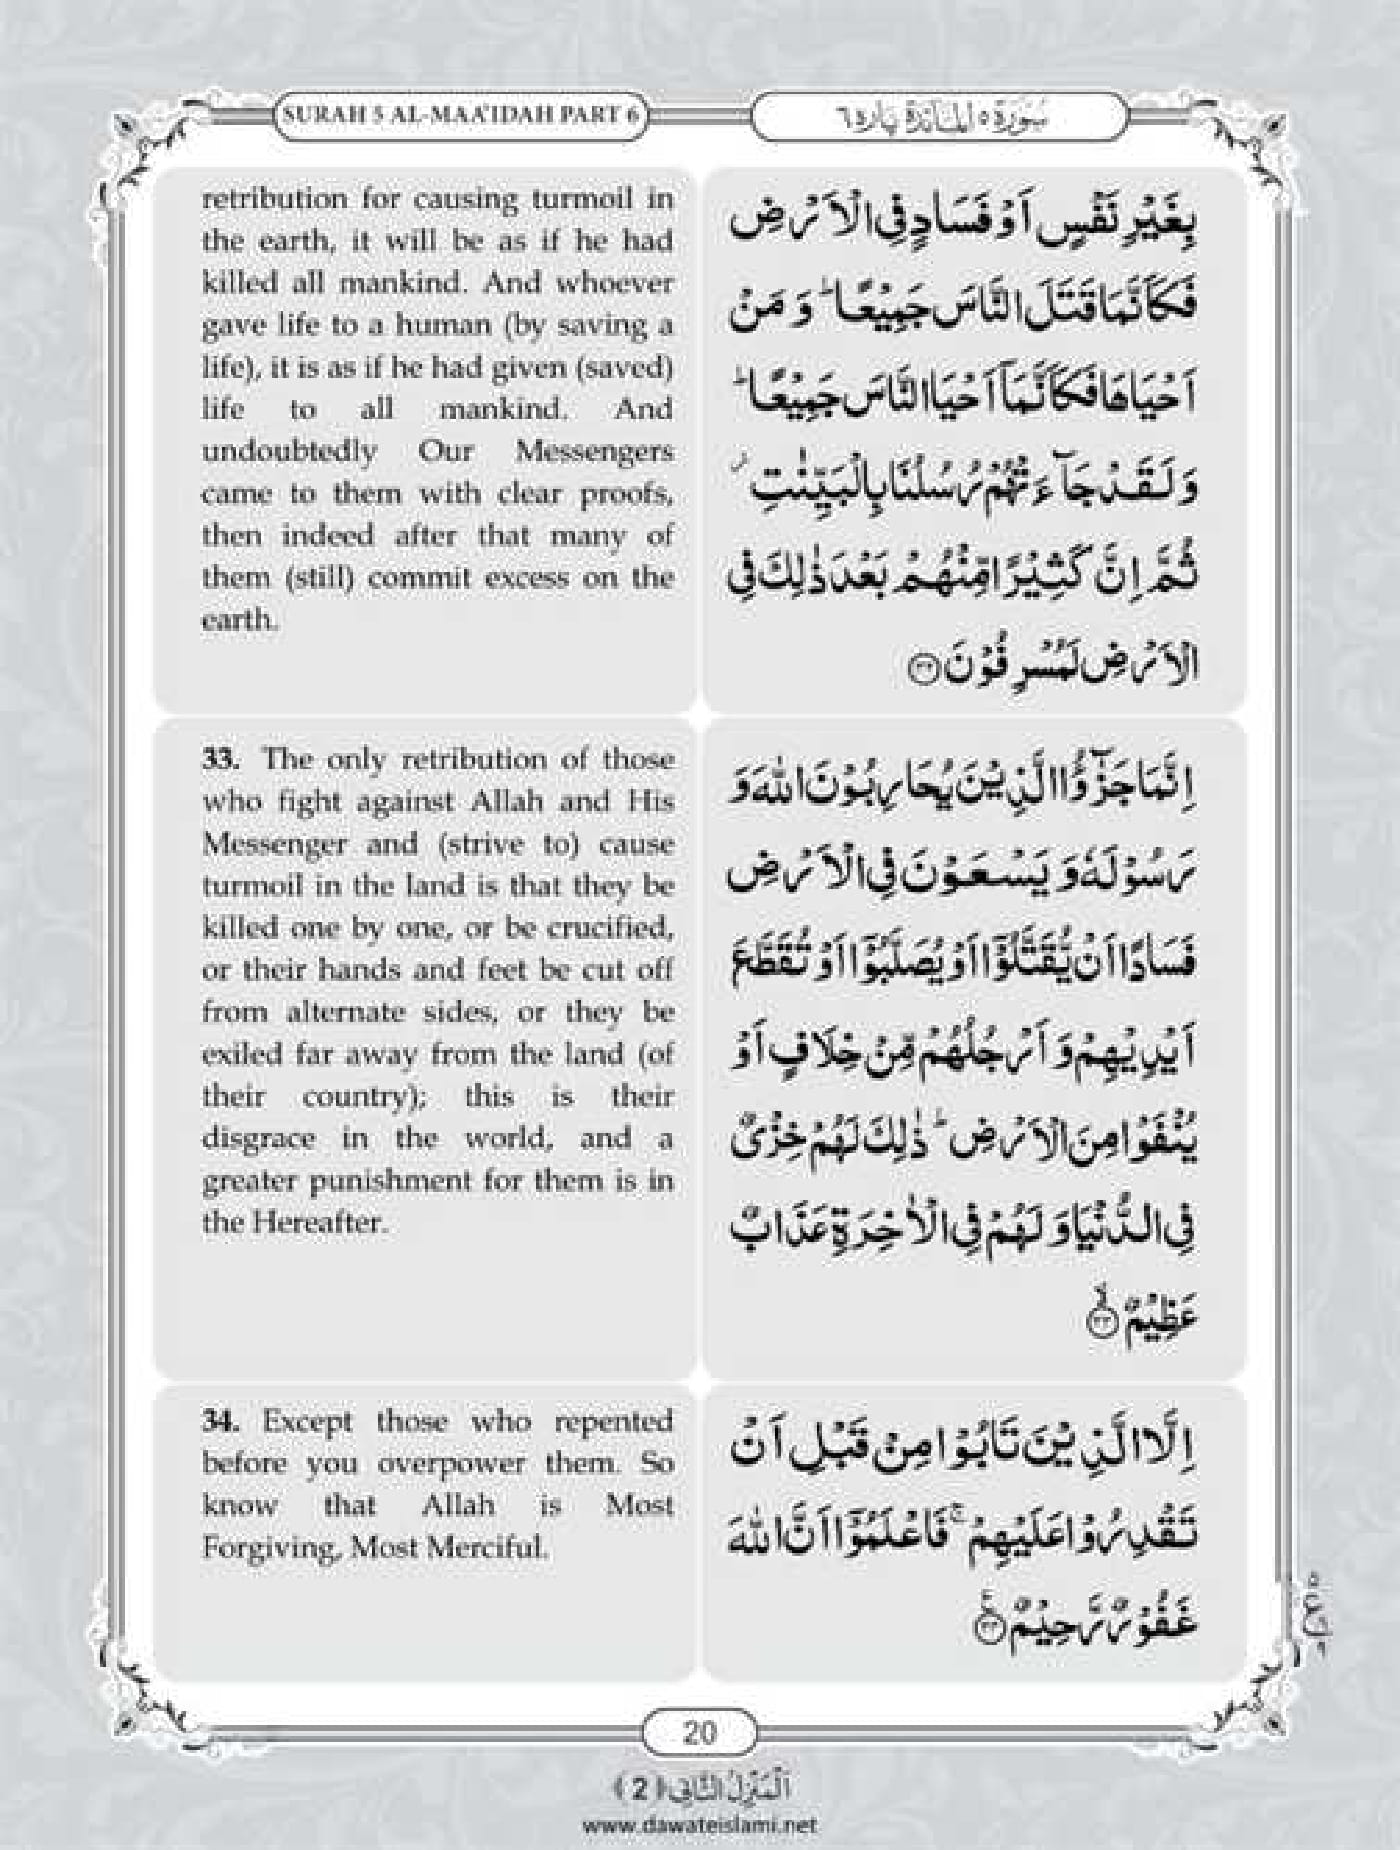 SURAH 5 AL-MAA'IDAH PART 6
سُوْرَة ٥ اَلْمَآئِدَة پارہ ٦
retribution for causing turmoil in
the earth, it will be as if he had
killed all mankind. And whoever
gave life to a human (by saving a
life), it is as if he had given (saved)
life to all mankind. And
undoubtedly Our Messengers
came to them with clear proofs,
then indeed after that many of
them (still) commit excess on the
earth.
بِغَيْرِ نَفْسٍ اَوْ فَسَادٍ فِي الْاَرْضِ
فَكَاَنَّمَا قَتَلَ النَّاسَ جَمِيْعًا ؕ وَ مَنْ
اَحْيَاهَا فَكَاَنَّمَاۤ اَحْيَا النَّاسَ جَمِيْعًا ؕ
وَ لَقَدْ جَآءَتْهُمْ رُسُلُنَا بِالْبَيِّنٰتِ ۫
ثُمَّ اِنَّ كَثِيْرًا مِّنْهُمْ بَعْدَ ذٰلِكَ فِي
الْاَرْضِ لَمُسْرِفُوْنَ ﴿۳۲﴾
33. The only retribution of those
who fight against Allah and His
Messenger and (strive to) cause
turmoil in the land is that they be
killed one by one, or be crucified,
or their hands and feet be cut off
from alternate sides, or they be
exiled far away from the land (of
their country); this is their
disgrace in the world, and a
greater punishment for them is in
the Hereafter.
اِنَّمَا جَزٰٓؤُا الَّذِيْنَ يُحَارِبُوْنَ اللّٰهَ وَ
رَسُوْلَهٗ وَ يَسْعَوْنَ فِي الْاَرْضِ
فَسَادًا اَنْ يُّقَتَّلُوْۤا اَوْ يُصَلَّبُوْۤا اَوْ تُقَطَّعَ
اَيْدِيْهِمْ وَ اَرْجُلُهُمْ مِّنْ خِلَافٍ اَوْ
يُنْفَوْا مِنَ الْاَرْضِ ؕ ذٰلِكَ لَهُمْ خِزْيٌ
فِي الدُّنْيَا وَ لَهُمْ فِي الْاٰخِرَةِ عَذَابٌ
عَظِيْمٌ ﴿۳۳﴾ۙ
34. Except those who repented
before you overpower them. So
know that Allah is Most
Forgiving, Most Merciful.
اِلَّا الَّذِيْنَ تَابُوْا مِنْ قَبْلِ اَنْ
تَقْدِرُوْا عَلَيْهِمْ ۚ فَاعْلَمُوْۤا اَنَّ اللّٰهَ
غَفُوْرٌ رَّحِيْمٌ ﴿۳۴﴾
20
اَلْمَنْزِلُ الثَّانِي ﴿2﴾
www.dawateislami.net